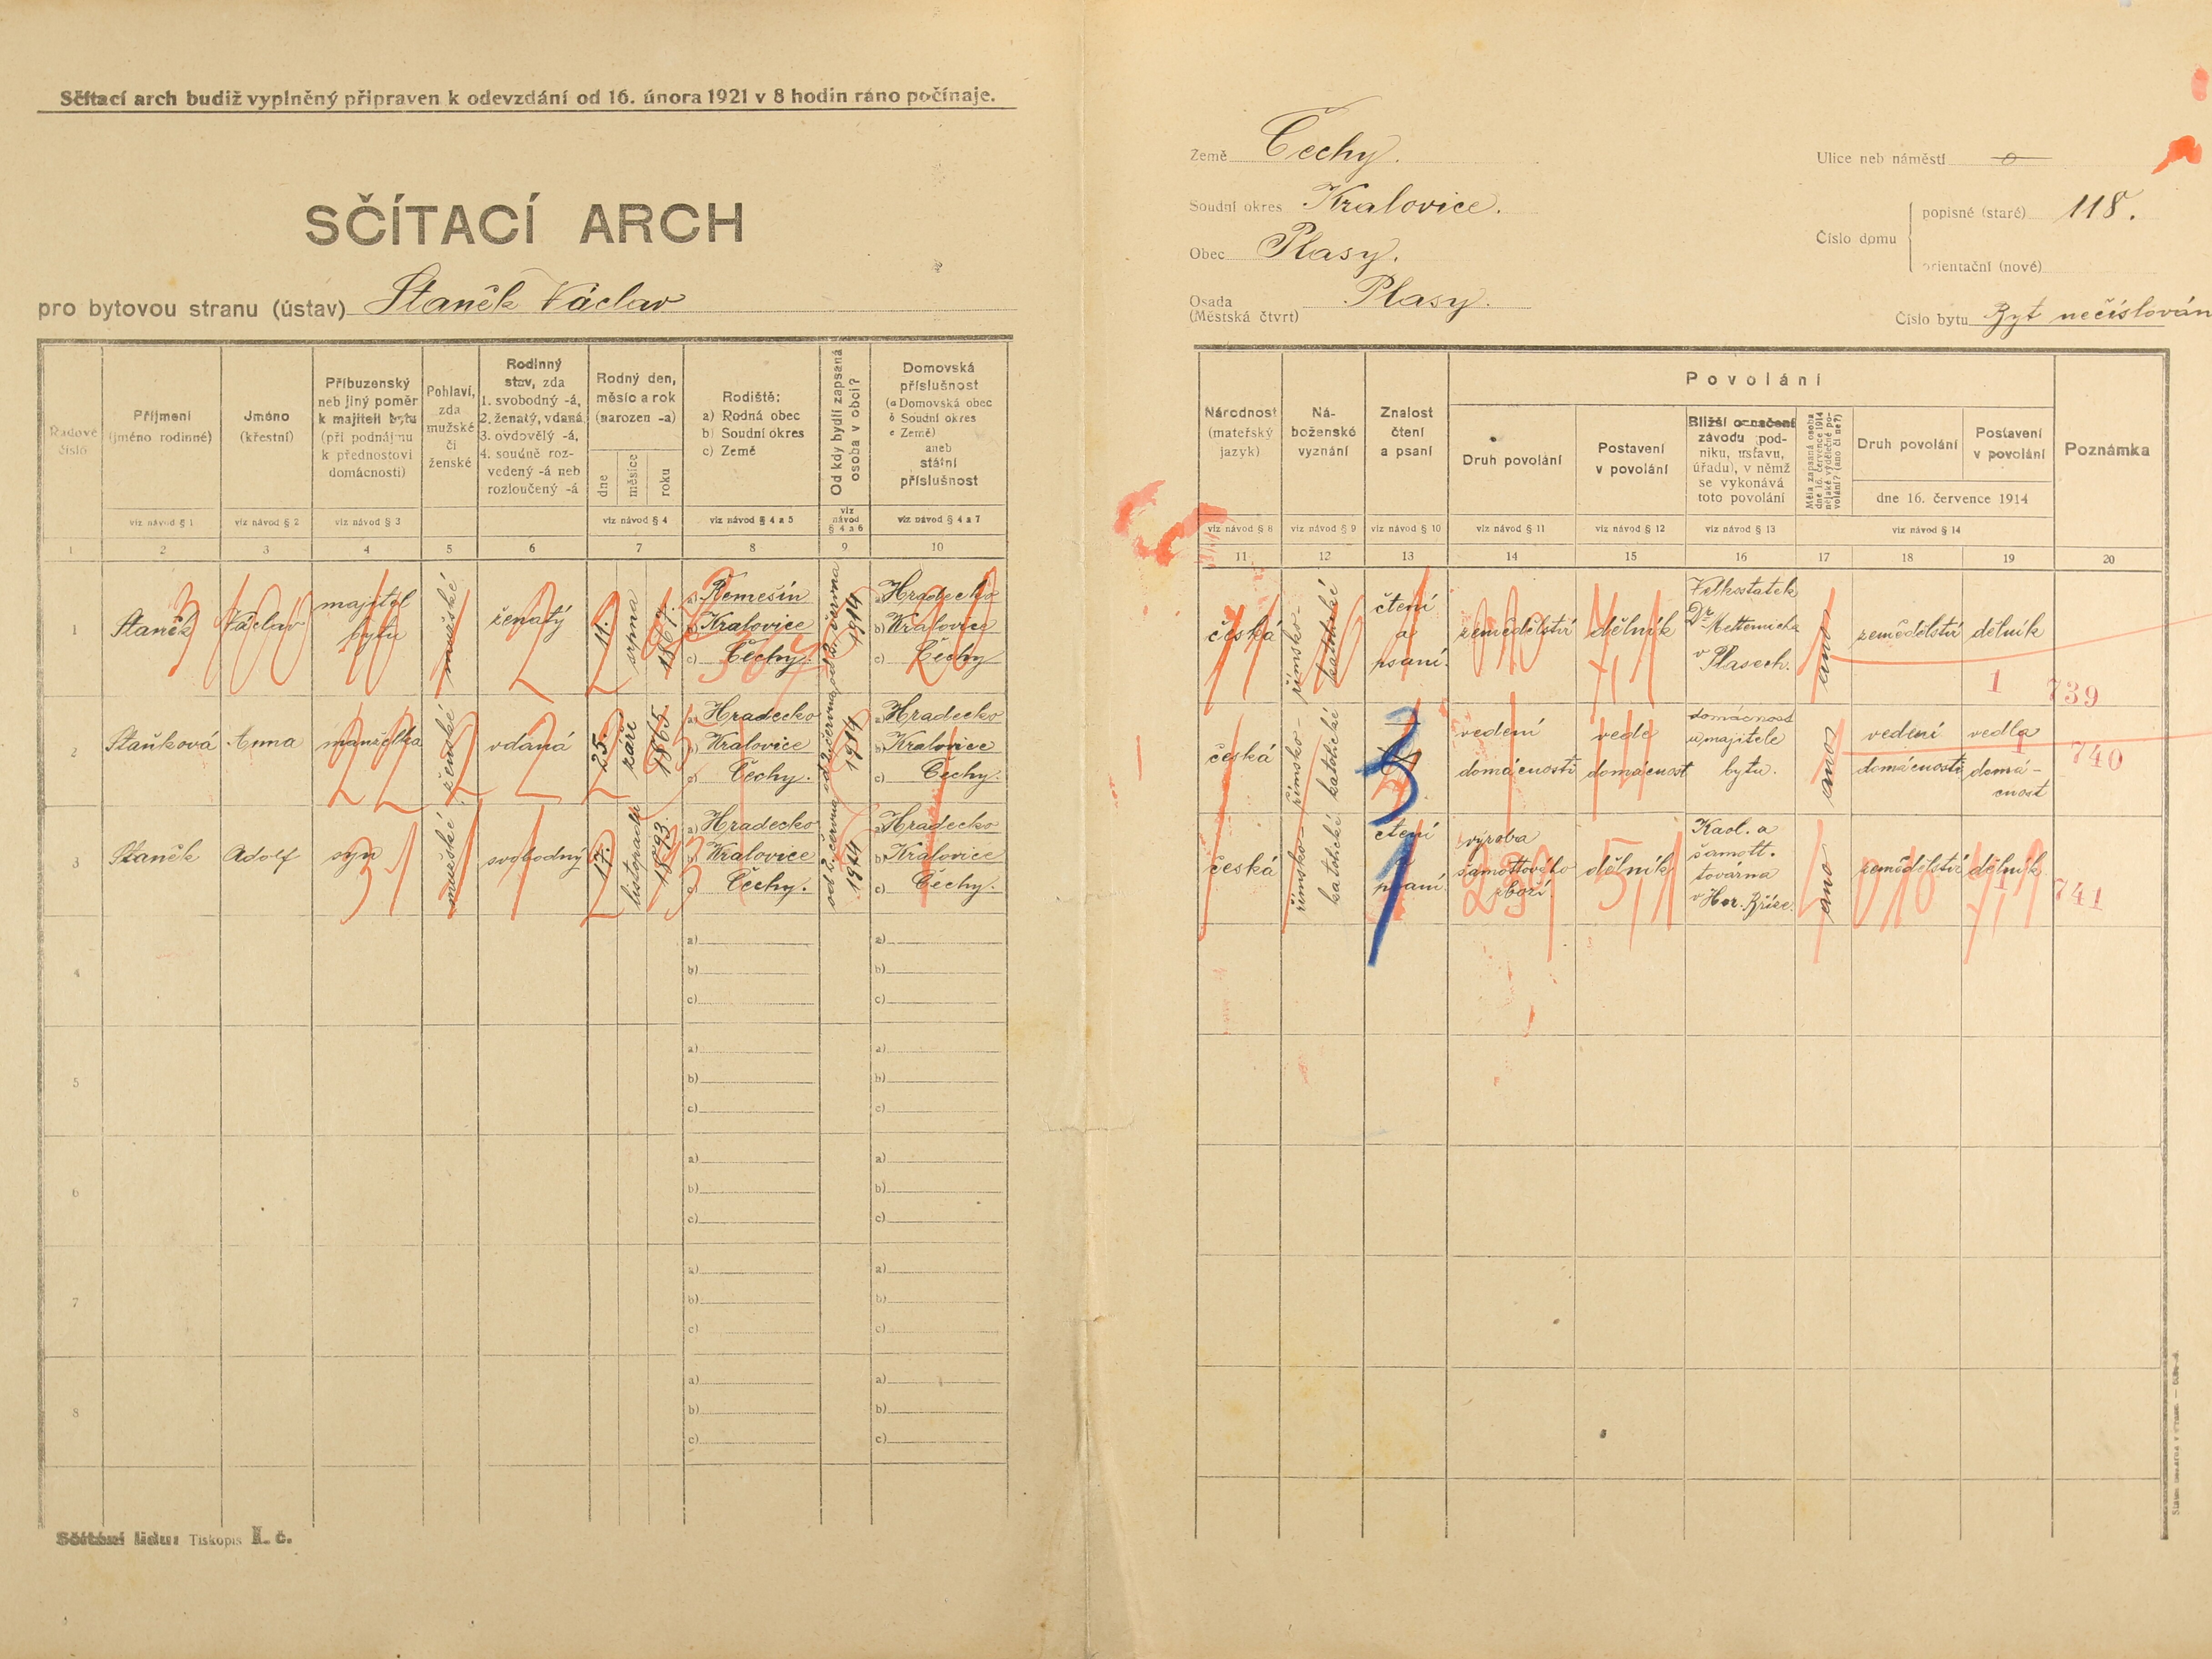 Sčítací arch budiž vyplněný připraven k odevzdání od 16. února 1921 v 8 hodin ráno počínaje.
SČÍTACÍ ARCH
pro bytovou stranu (ústav) Staněk Václav
Země Čechy.
Soudní okres Kralovice.
Obec Plasy.
Osada Plasy.
(Městská čtvrt)
Ulice neb náměstí
Číslo domu
popisné (staré) 118.
orientační (nové)
Číslo bytu Byt nečíslován
Řadové číslo
Příjmení (jméno rodinné)
Jméno (křestní)
Příbuzenský neb jiný poměr k majiteli bytu (při podnájmu k přednostovi domácnosti)
Pohlaví, zda mužské či ženské
Rodinný stav, zda 1. svobodný -á, 2. ženatý, vdaná 3. ovdovělý -á, 4. soudně rozvedený -á neb rozloučený -á
Rodný den, měsíc a rok (narozen -a)
dne
měsíce
roku
Rodiště:
a) Rodná obec
b) Soudní okres
c) Země
Od kdy bydlí zapsaná osoba v obci?
Domovská příslušnost
(a Domovská obec
b Soudní okres
c Země)
aneb
státní příslušnost
viz návod § 1
viz návod § 2
viz návod § 3
viz návod § 4
viz návod § 4 a 5
viz návod § 4 a 6
viz návod § 4 a 7
1 2 3 4 5 6 7 8 9 10
1 Staněk Václav majitel bytu mužské ženatý 11. srpna 1867.
a) Řemešín
b) Kralovice
c) Čechy.
od 2. června 1914
a) Hradecko
b) Kralovice
c) Čechy
2 Staňková Anna manželka ženské vdaná 25. září 1865.
a) Hradecko
b) Kralovice
c) Čechy.
od 2. června 1914
a) Hradecko
b) Kralovice
c) Čechy.
3 Staněk Adolf syn mužské svobodný 17. listopadu 1893.
a) Hradecko
b) Kralovice
c) Čechy.
od 2. června 1914
a) Hradecko
b) Kralovice
c) Čechy.
4
a) a)
b) b)
c) c)
5
a) a)
b) b)
c) c)
6
a) a)
b) b)
c) c)
7
a) a)
b) b)
c) c)
8
a) a)
b) b)
c) c)
Tiskopis II. č.
Národnost (mateřský jazyk)
Náboženské vyznání
Znalost čtení a psaní
Povolání
Druh povolání
Postavení v povolání
Bližší označení závodu (podniku, ústavu, úřadu), v němž se vykonává toto povolání
Měla zapsaná osoba dne 16. července 1914 nějaké výdělečné povolání? (ano či ne?)
Druh povolání
Postavení v povolání
dne 16. července 1914
Poznámka
viz návod § 8
viz návod § 9
viz návod § 10
viz návod § 11
viz návod § 12
viz návod § 13
viz návod § 14
11 12 13 14 15 16 17 18 19 20
česká římsko-katolické čtení a psaní. zemědělství dělník
Velkostatek
Dr Metternicha
v Plasech.
ano zemědělství dělník
739
česká římsko-katolické
vedení domácnosti
vede domácnost
domácnost
u majitele
bytu.
ano
vedení domácnosti
vedla domácnost
740
česká římsko-katolické čtení psaní
výroba
šamottového
zboží.
dělník
Kaol. a
šamott.
továrna
v Hor. Bříze.
ano zemědělství dělník
741